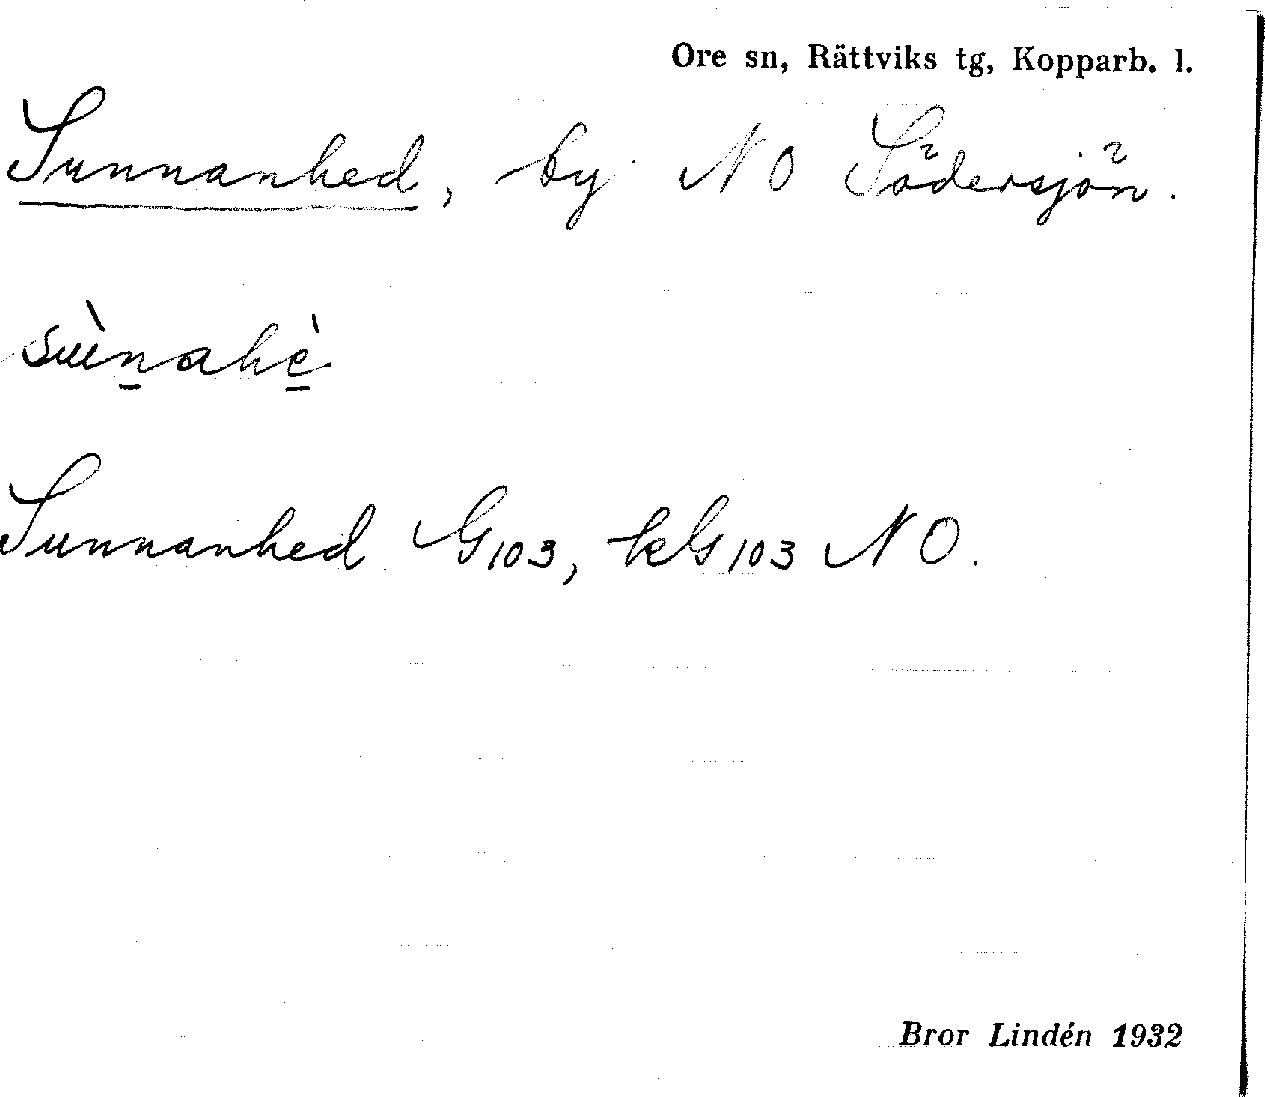 Ore sn, Rättviks tg, Kopparb. l.
Sunnanhed, by NO Södersjön.
sɯ̀n̲ahè̲
Sunnanhed G103, kG103 NO.
Bror Lindén 1932